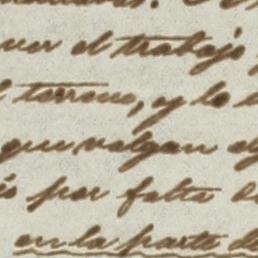 ver el trabajo
terreno, y lo
que valgan al
por falta d
en la parte de